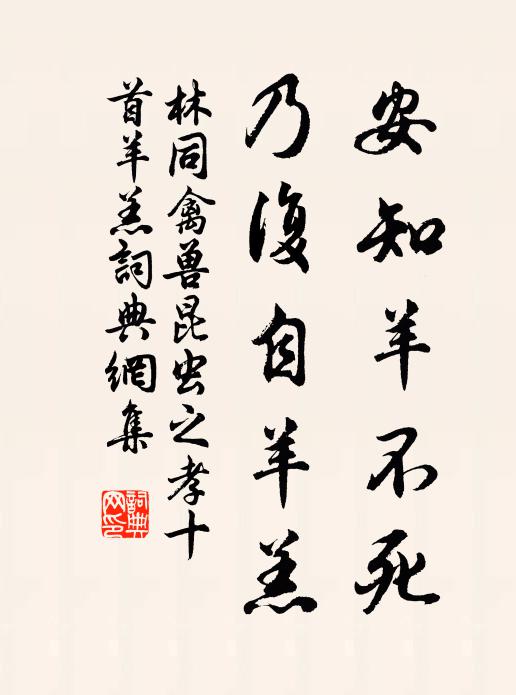 安知羊不死
乃復自羊羔
林同禽兽昆虫之孝十
首羊羔詞典網集
詞典
网印